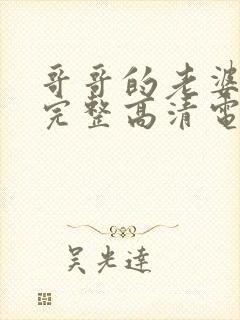 哥哥的老婆
完整高清電
吴光達